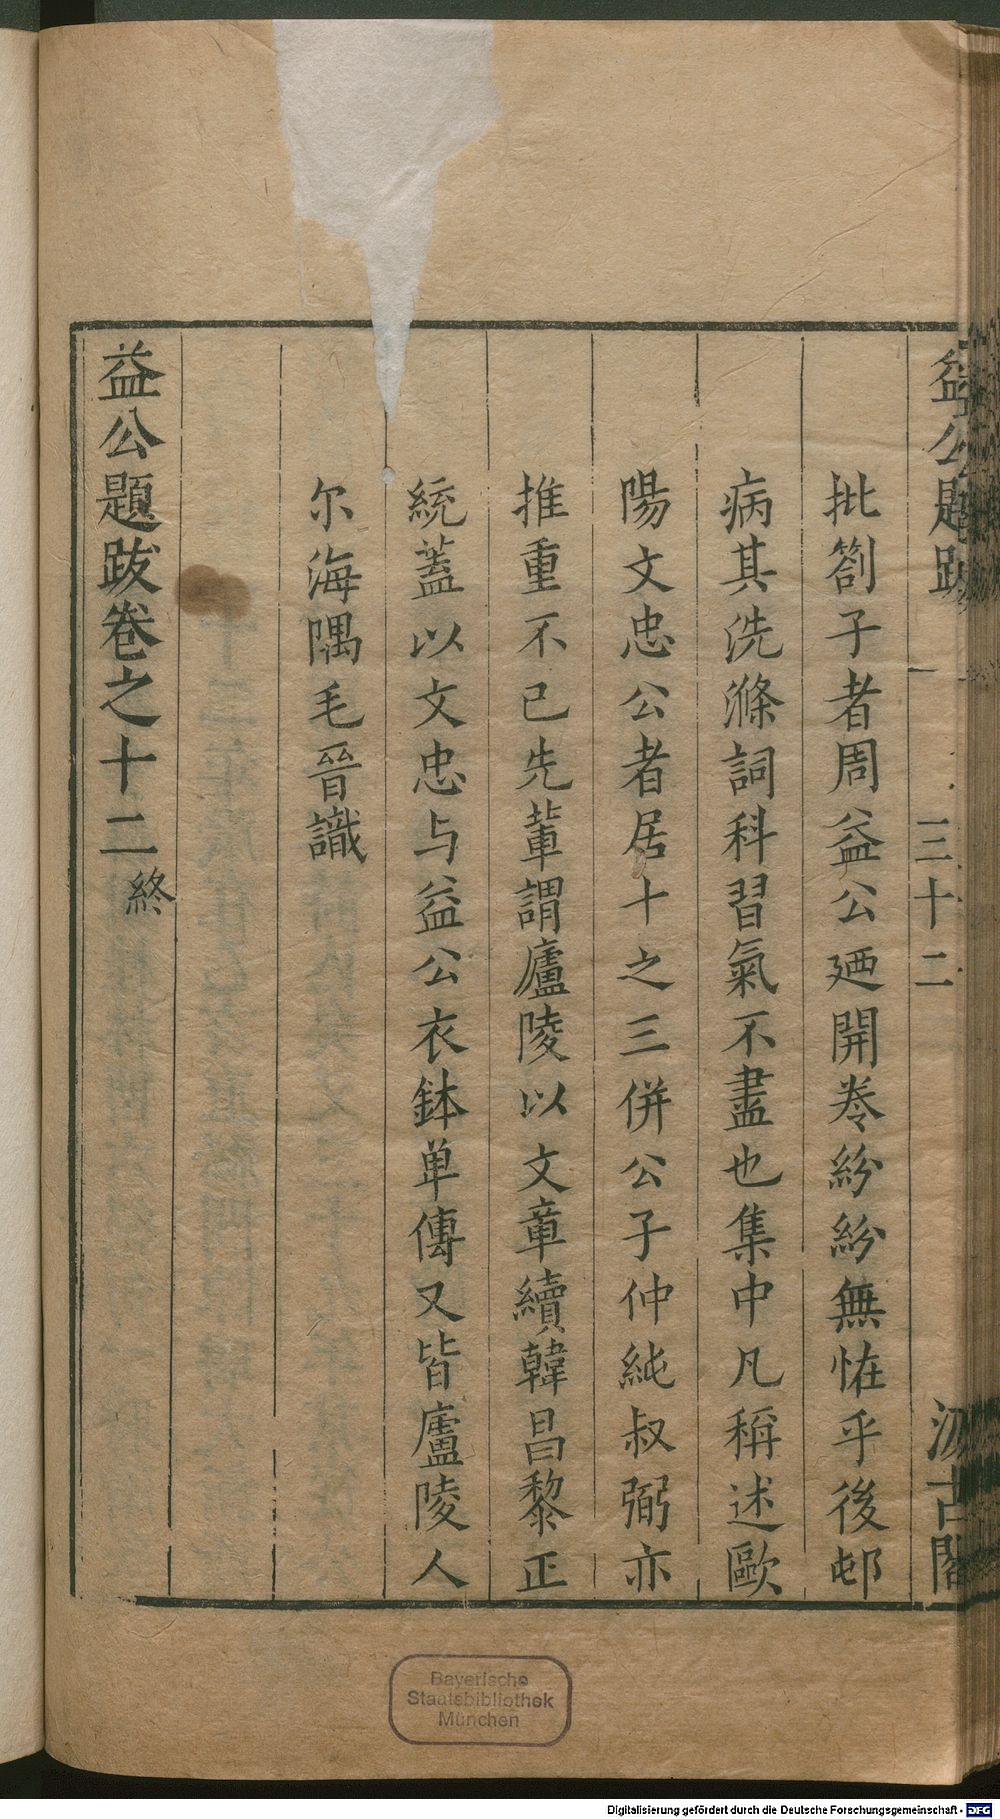 益公題跋
三十二
汲古閣
批劄子者周益公迺開卷紛紛無恠乎後邨
病其洗滌詞科習氣不盡也集中凡稱述歐
陽文忠公者居十之三併公子仲純叔弼亦
推重不已先輩謂廬陵以文章續韓昌黎正
統蓋以文忠与益公衣鉢单傳又皆廬陵人
尔海隅毛晉識
益公題跋卷之十二終
Bayerische
Staatsbibliothek
München
Digitalisierung gefördert durch die Deutsche Forschungsgemeinschaft - DFG